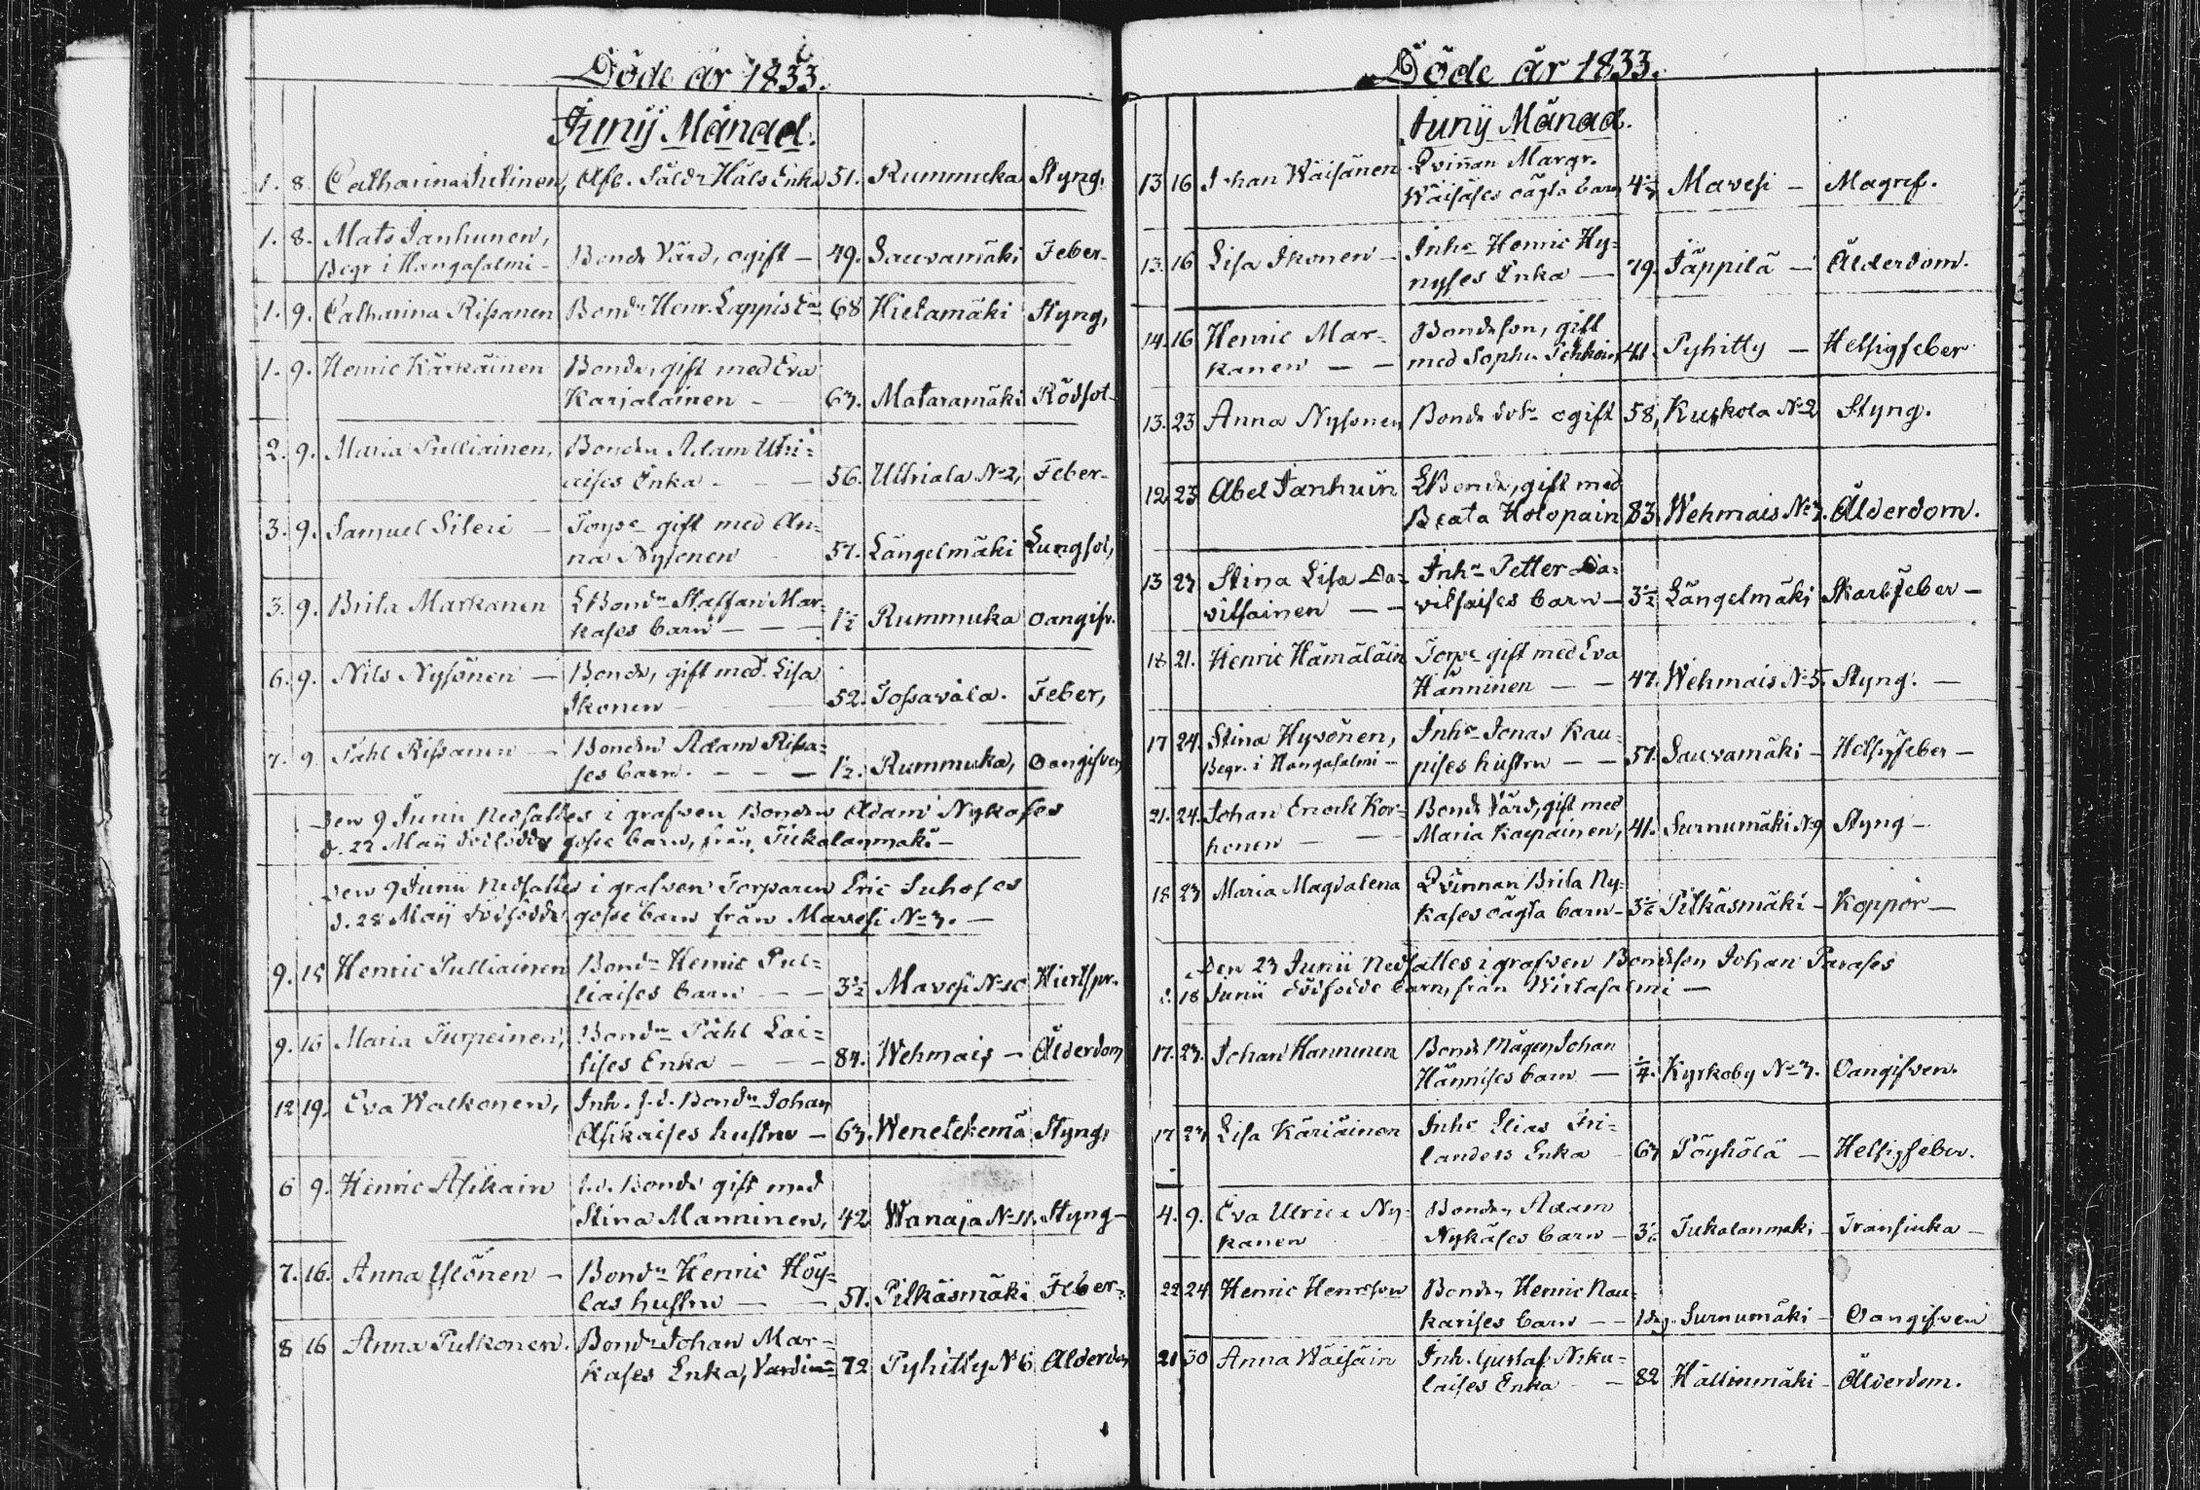 Döde år 1833.
Junij Månad.
1. 8. Catharina Intinen, Afl. Säldr Häls Enka 51. Rummuka Styng,
1. 8. Mats Janhunen,
Begr i Hangasalmi - Bonde Värd, ogift - 49. Sauvamäki Feber-
1. 9. Catharina Rißanen Bondn Henr. Lappis Ea 68 Hietamäki Styng,
1. 9. Henric Kärkäinen Bonde, gift med Eva
Karjalainen - 63. Mataramäki Rödsot-
2. 9. Maria Pulliainen, Bonden Adam Utri=
aises Enka - - 56. Uttriala No 2, Feber-
3. 9. Samuel Sileri - Torpe gift med An=
na Nysönen 57. Längelmäki Lungsot,
3. 9. Brita Markanen LBondn Staffan Mar=
kases barn - - - 1½ Rummuka oangifv.
6. 9. Nils Nysönen - Bonde, gift med Lisa
Ikonen - - 52. Toßavala. Feber,
7. 9 Påhl Rißanen - Bonden Adam Rißa=
ses barn. - - - ½. Rummuka, Oangifven
Den 9 Junii nedsattes i grafven Bonden Adam Nykases
d. 22 Maij dödfödde goße barn, från Tukalanmäki -
Den 9 Junii nedsattes i grafven Torparen Eric Suhoses
d. 28 Maij dödfödde goße barn från Mavesi No 3. -
9. 15 Henric Pulliainen Bondn Henric Pul=
liaises barn - - 3½ Mavesi No 10 Hiertspr.
9. 16 Maria Turpeinen, Bondn Påhl Lai=
tises Enka - - 84. Wehmais - Ålderdom
12 19. Eva Walkonen, Inh. f.d. Bondn Johan
Asikaises hustru - 63. Wenetekemä Styng,
6 9. Henric Asikain f.d. Bonde gift med
Stina Manninen, 42 Wanaja No 11. Styng-
7. 16. Anna Ylönen - Bondn Henric Höy=
läs hustru - - 51. Pitkäsmäki Feber-
8 16 Anna Pulkonen. Bondn Johan Mar=
kases Enka, 72 Pyhitty No 6 Ålderdom
Döde år 1833.
Junij Månad.
13 16 Johan Wäisänen Qvinnan Margr.
Wäisäses oägta barn Mavesi - Magref.
13. 16 Lisa Ikonen - Inhe Henric Hy=
nyses Enka - 79. Jäppilä - Ålderdom.
14. 16 Henric Mar= Bondeson, gift
kanen - - med Sophia 41. Pyhitty - Hetsigfeber
13. 23 Anna Nysönen Bonde dotr ogift 58, Kuskola No 2 Styng.
12. 23 Abel Janhuin LBonde, gift med
Beata Holopain 83. Wehmais No 3. Ålderdom.
13 23 Stina Lisa Da= Inhe Petter Da=
vitsainen - - vitsaises barn - 3½ Längelmäki Skarlfeber -
18 21. Henric Hämäläin Torpe gift med Eva
Hänninen - - 47. Wehmais No 5. Styng. -
17 24. Stina Hyvönen, Inhe Jonas Kau=
Begr. i Hangasalmi - pises hustru - - 57. Sauvamäki - Hetsigfeber -
21. 24. Johan Enoch Kor= Bonde Värd, gift med
honen - - Maria Kaepäinen, 41. Surnumäki No 9 Styng -
18 23 Maria Magdalena Qvinnan Brita Ny=
kases oägta barn - Pitkäsmäki - Koppor -
Den 23 Junii nedsattes i grafven Bondeson Johan Parases
d. 18 Junii dödfödde barn, från Wirtasalmi -
17. 23. Johan Hänninen Bonde Mågen Johan
Hännises barn - ¼. Kyrkoby No 3. Oangifven.
17 23 Lisa Käriäinen Inhe Elias Fri=
landers Enka - 63 Pöyhölä - Hetsigfeber.
4. 9. Eva Ulrica Ny= Bonden Adam
kanen Nykäses barn - Tukalanmäki - Transiuka -
22 24 Henric Henrcson Bonden Henric Nau=
karises barn - - 1 dag. Surnumäki - Oangifven
21 30 Anna Wäisäin Inh. Gustaf Niku=
laises Enka - 82 Hällinmäki - Ålderdom.